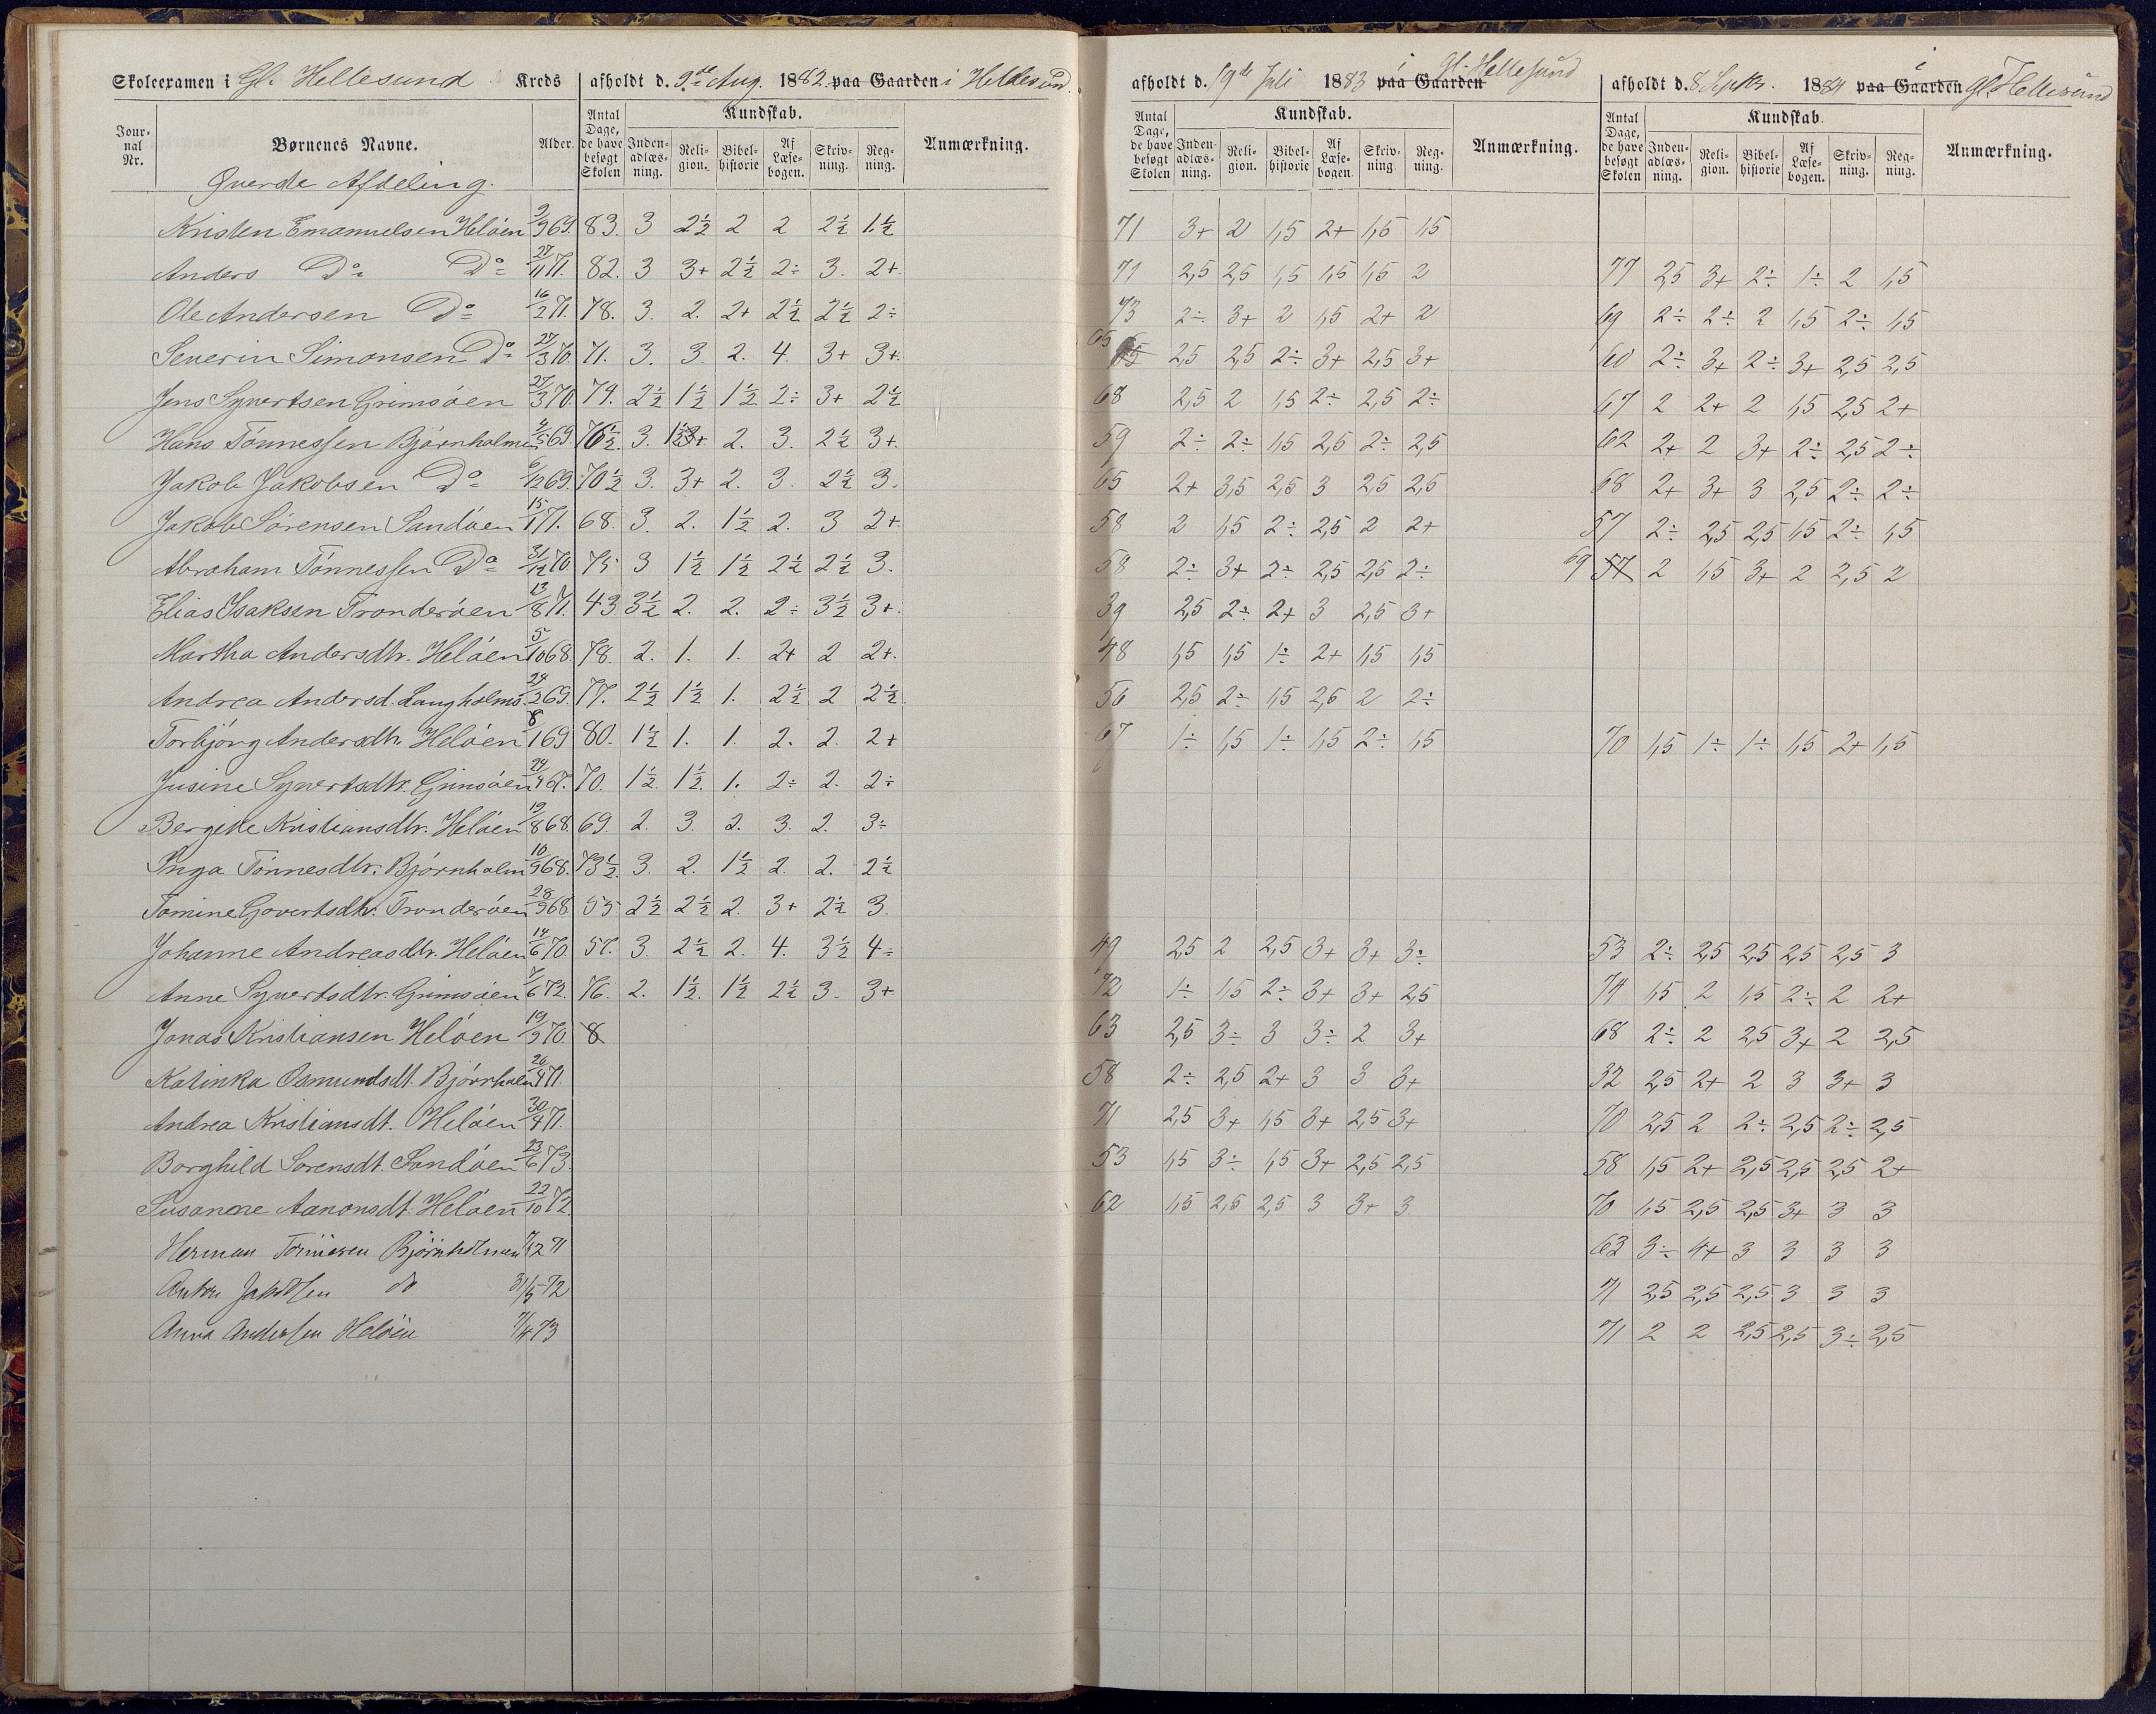 Skoleexamen i Gl. Hellesund Kreds afholdt d. 9de Aug. 1882 paa Gaarden i Hellesund. afholdt d. 19de Juli 1883 paa Gaarden i Gl. Hellesund afholdt d. 8 Septbr. 1884 paa Gaarden i Gl. Hellesund
Jour-nal Nr. Børnenes Navne. Alder. Antal Dage, de have besøgt Skolen Kundskab. Inden-adlæs-ning. Reli-gion. Bibel-historie Af Læse-bogen. Skriv-ning. Reg-ning. Anmærkning. Antal Dage, de have besøgt Skolen Kundskab. Inden-adlæs-ning. Reli-gion. Bibel-historie Af Læse-bogen. Skriv-ning. Reg-ning. Anmærkning. Antal Dage, de have besøgt Skolen Kundskab. Inden-adlæs-ning. Reli-gion. Bibel-historie Af Læse-bogen. Skriv-ning. Reg-ning. Anmærkning.
Øverste Afdeling.
Kristen Emanuelsen Heløen 9/9 69. 83. 3 2½ 2 2 2½ 1½ 71 3+ 2 1,5 2+ 1,5 1,5
Anders Do Do 27/11 71. 82. 3 3+ 2½ 2÷ 3. 2+ 71 2,5 2,5 1,5 1,5 1,5 2 77 2,5 3+ 2÷ 1÷ 2 1,5
Ole Andersen Do 16/2 71. 78. 3. 2. 2+ 2½ 2½ 2÷ 73 2÷ 3+ 2 1,5 2+ 2 69 2÷ 2÷ 2 1,5 2÷ 1,5
Severin Simonsen Do 27/3 70. 71. 3. 3. 2. 4. 3+ 3+ 65 2,5 2,5 2÷ 3+ 2,5 3+ 60 2÷ 3+ 2÷ 3+ 2,5 2,5
Jens Syvertsen Grimsøen 27/3 70. 79. 2½ 1½ 1½ 2÷ 3+ 2½ 68 2,5 2 1,5 2÷ 2,5 2÷ 67 2 2+ 2 1,5 2,5 2+
Hans Tønnessen Bjørnholmen 69. 76½. 3. 3+ 2. 3. 2½ 3+ 59 2÷ 2÷ 1,5 2,5 2÷ 2,5 62 2+ 2 3+ 2÷ 2,5 2÷
Jakob Jakobsen Do 6/12 69. 70½ 3. 3+ 2. 3. 2½ 3. 65 2+ 3,5 2,5 3 2,5 2,5 68 2+ 3+ 3 2,5 2÷ 2÷
Jakob Sørensen Sandøen 15/1 71. 68. 3. 2. 1½ 2. 3 2+ 58 2 1,5 2÷ 2,5 2 2+ 57 2÷ 2,5 2,5 1,5 2÷ 1,5
Abraham Tønnessen Do 31/12 70. 75 3 1½ 1½ 2½ 2½ 3. 58 2÷ 3+ 2÷ 2,5 2,5 2÷ 69 57 2 1,5 3+ 2 2,5 2
Elias Isaksen Tronderøen 13/8 71. 43 3½ 2. 2. 2÷ 3½ 3+ 39 2,5 2÷ 2+ 3 2,5 3+
Martha Andersdtr. Heløen 5/10 68. 78. 2. 1. 1. 2+ 2 2+ 48 1,5 1,5 1÷ 2+ 1,5 1,5
Andrea Andersd. Langholms. 24/2 69. 77. 2½ 1½ 1. 2½ 2 2½ 56 2,5 2÷ 1,5 2,5 2 2÷
Torbjørg Andersdtr. Heløen 8/1 69 80. 1½ 1. 1. 2. 2. 2+ 67 1÷ 1,5 1÷ 1,5 2÷ 1,5 70 1,5 1÷ 1÷ 1,5 2+ 1,5
Jusine Syvertsdtr. Grimsøen 24/4 67. 70. 1½ 1½ 1. 2÷ 2. 2÷
Bergitte Kristiansdtr. Heløen 19/8 68. 69. 2. 3. 2. 3. 2. 3÷
Inga Tønnesdtr. Bjørnholm 10/9 68. 73½ 3. 2. 1½ 2. 2. 2½
Tomine Govertsdtr. Tronderøen 28/9 68 55 2½ 2½ 2. 3+ 2½ 3.
Johanne Andreasdtr. Heløen 14/6 70. 57. 3. 2½ 2. 4. 3½ 4÷ 49 2,5 2 2,5 3+ 3+ 3÷ 53 2÷ 2,5 2,5 2,5 2,5 3
Anne Syvertsdtr. Grimsøen 7/6 72. 76. 2. 1½ 1½ 2½ 3. 3+ 72 1÷ 1,5 2÷ 3+ 3+ 2,5 74 1,5 2 1,5 2÷ 2 2+
Jonas Kristiansen Heløen 19/9 70. 8 63 2,5 3÷ 3 3÷ 2 3+ 68 2÷ 2 2,5 3+ 2 2,5
Katinka Osmundsdt. Bjørnholm 26/4 71. 58 2÷ 2,5 2+ 3 3 3+ 32 2,5 2+ 2 3 3+ 3
Andrea Kristiansdt. Heløen 30/4 71. 71 2,5 3+ 1,5 3+ 2,5 3+ 70 2,5 2 2÷ 2,5 2÷ 2,5
Borghild Sørensdt. Sandøen 23/6 73. 53 1,5 3÷ 1,5 3+ 2,5 2,5 58 1,5 2+ 2,5 2,5 2,5 2+
Susanne Aanonsdt. Heløen 22/10 72. 62 1,5 2,5 2,5 3 3+ 3 70 1,5 2,5 2,5 3+ 3 3
Herman Tönnesen Bjørnholmen 71 63 3÷ 4+ 3 3 3 3
Anton Jakobsen do 31/5 72 71 2,5 2,5 2,5 3 3 3
Anna Andersen Heløen 7/4 73 71 2 2 2,5 2,5 3÷ 2,5